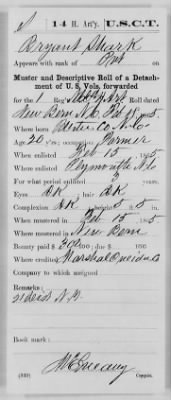 S 14 H. Art'y. U.S.C.T.
Bryant Shark
Appears with rank of Pvt on
Muster and Descriptive Roll of a Detachment of U. S. Vols. forwarded
for the 1 Reg't Roll dated
New Bern N.C. 1865
Where born Co. N.C.
Age 20 y'rs; occupation Farmer
When enlisted Feb 15, 1865
Where enlisted Plymouth N.C.
For what period enlisted years
Eyes DK; hair DK
Complexion DK; height 5 ft. 5 in.
When mustered in Feb 15, 1865
Where mustered in New Bern
Bounty paid $ 100; due $ 100
Where credited Marshal Oneida Co
Company to which assigned
Remarks:
N.Y.
Book mark:
Copyist.